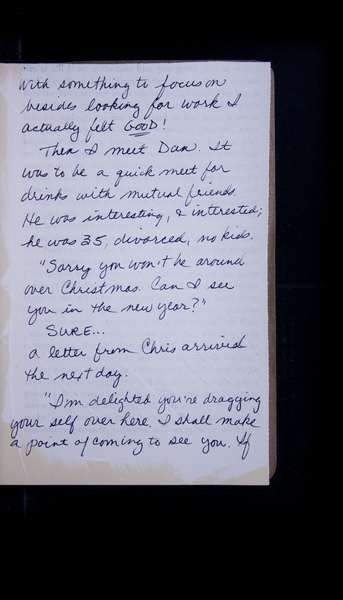 with something to focus on
besides looking for work I
actually felt GOOD!
Then I meet Dan. It
was to be a quick meet for
drinks with mutual friends.
He was interesting, & interested;
he was 35, divorced, no kids.
"Sorry you won't be around
over Christmas. Can I see
you in the new year?"
SURE...
a letter from Chris arrived
the next day.
"I'm delighted you're dragging
your self over here. I shall make
a point of coming to see you. If